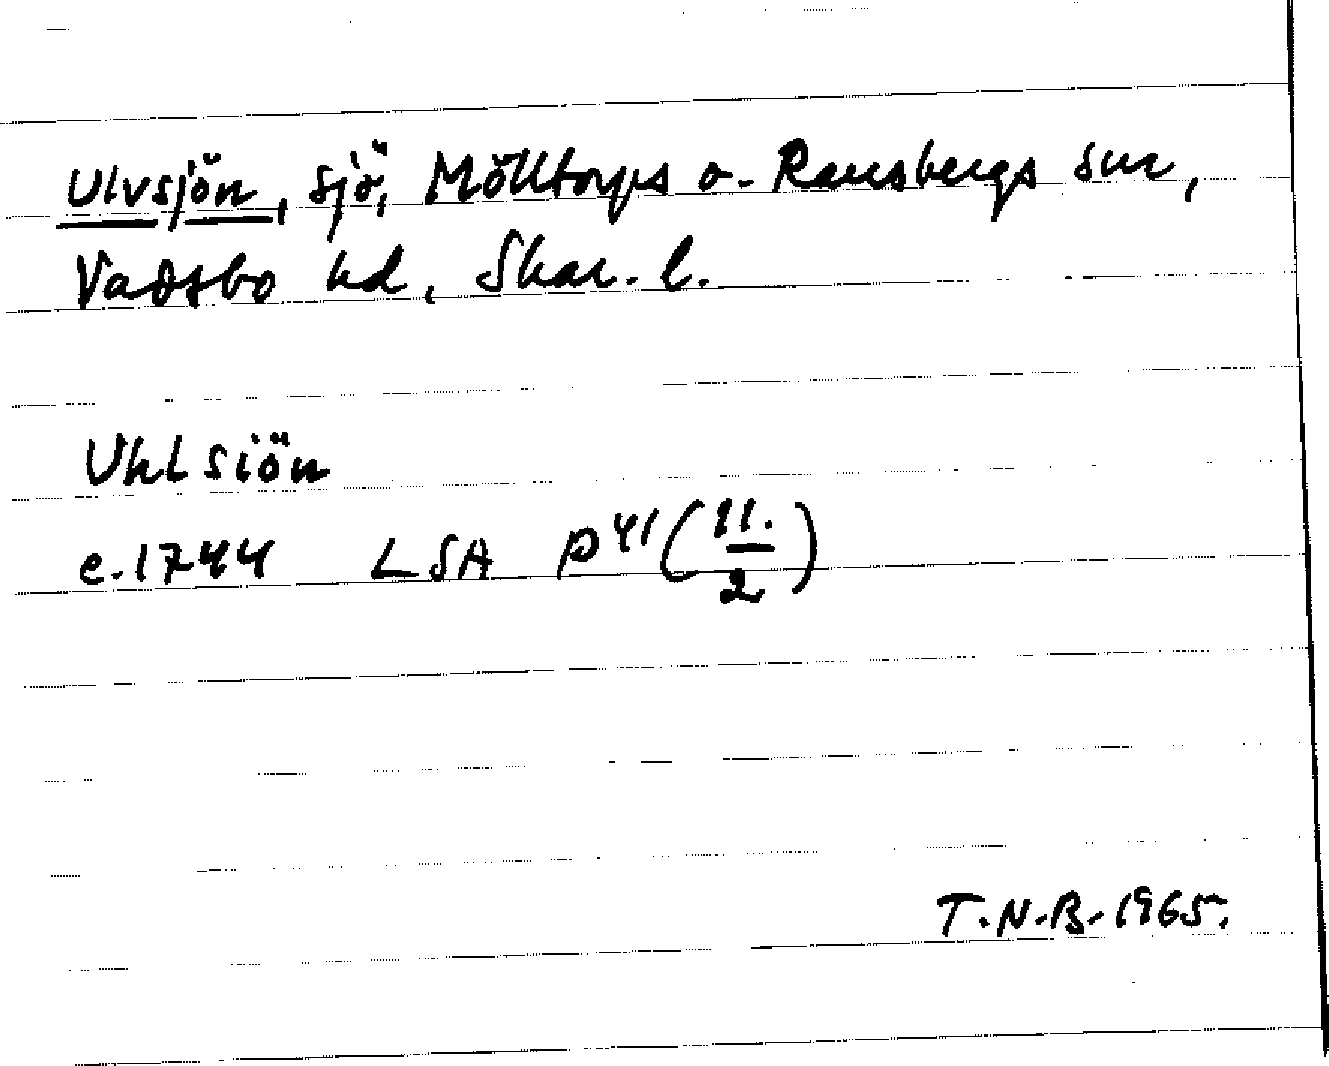 Ulvsjön, sjö, Mölltorps o. Ransbergs snr,
Vadsbo hd, Skar. l.
Uhlsiön
c. 1744 LSA P 41 (11./2)
T.N.B. 1965.